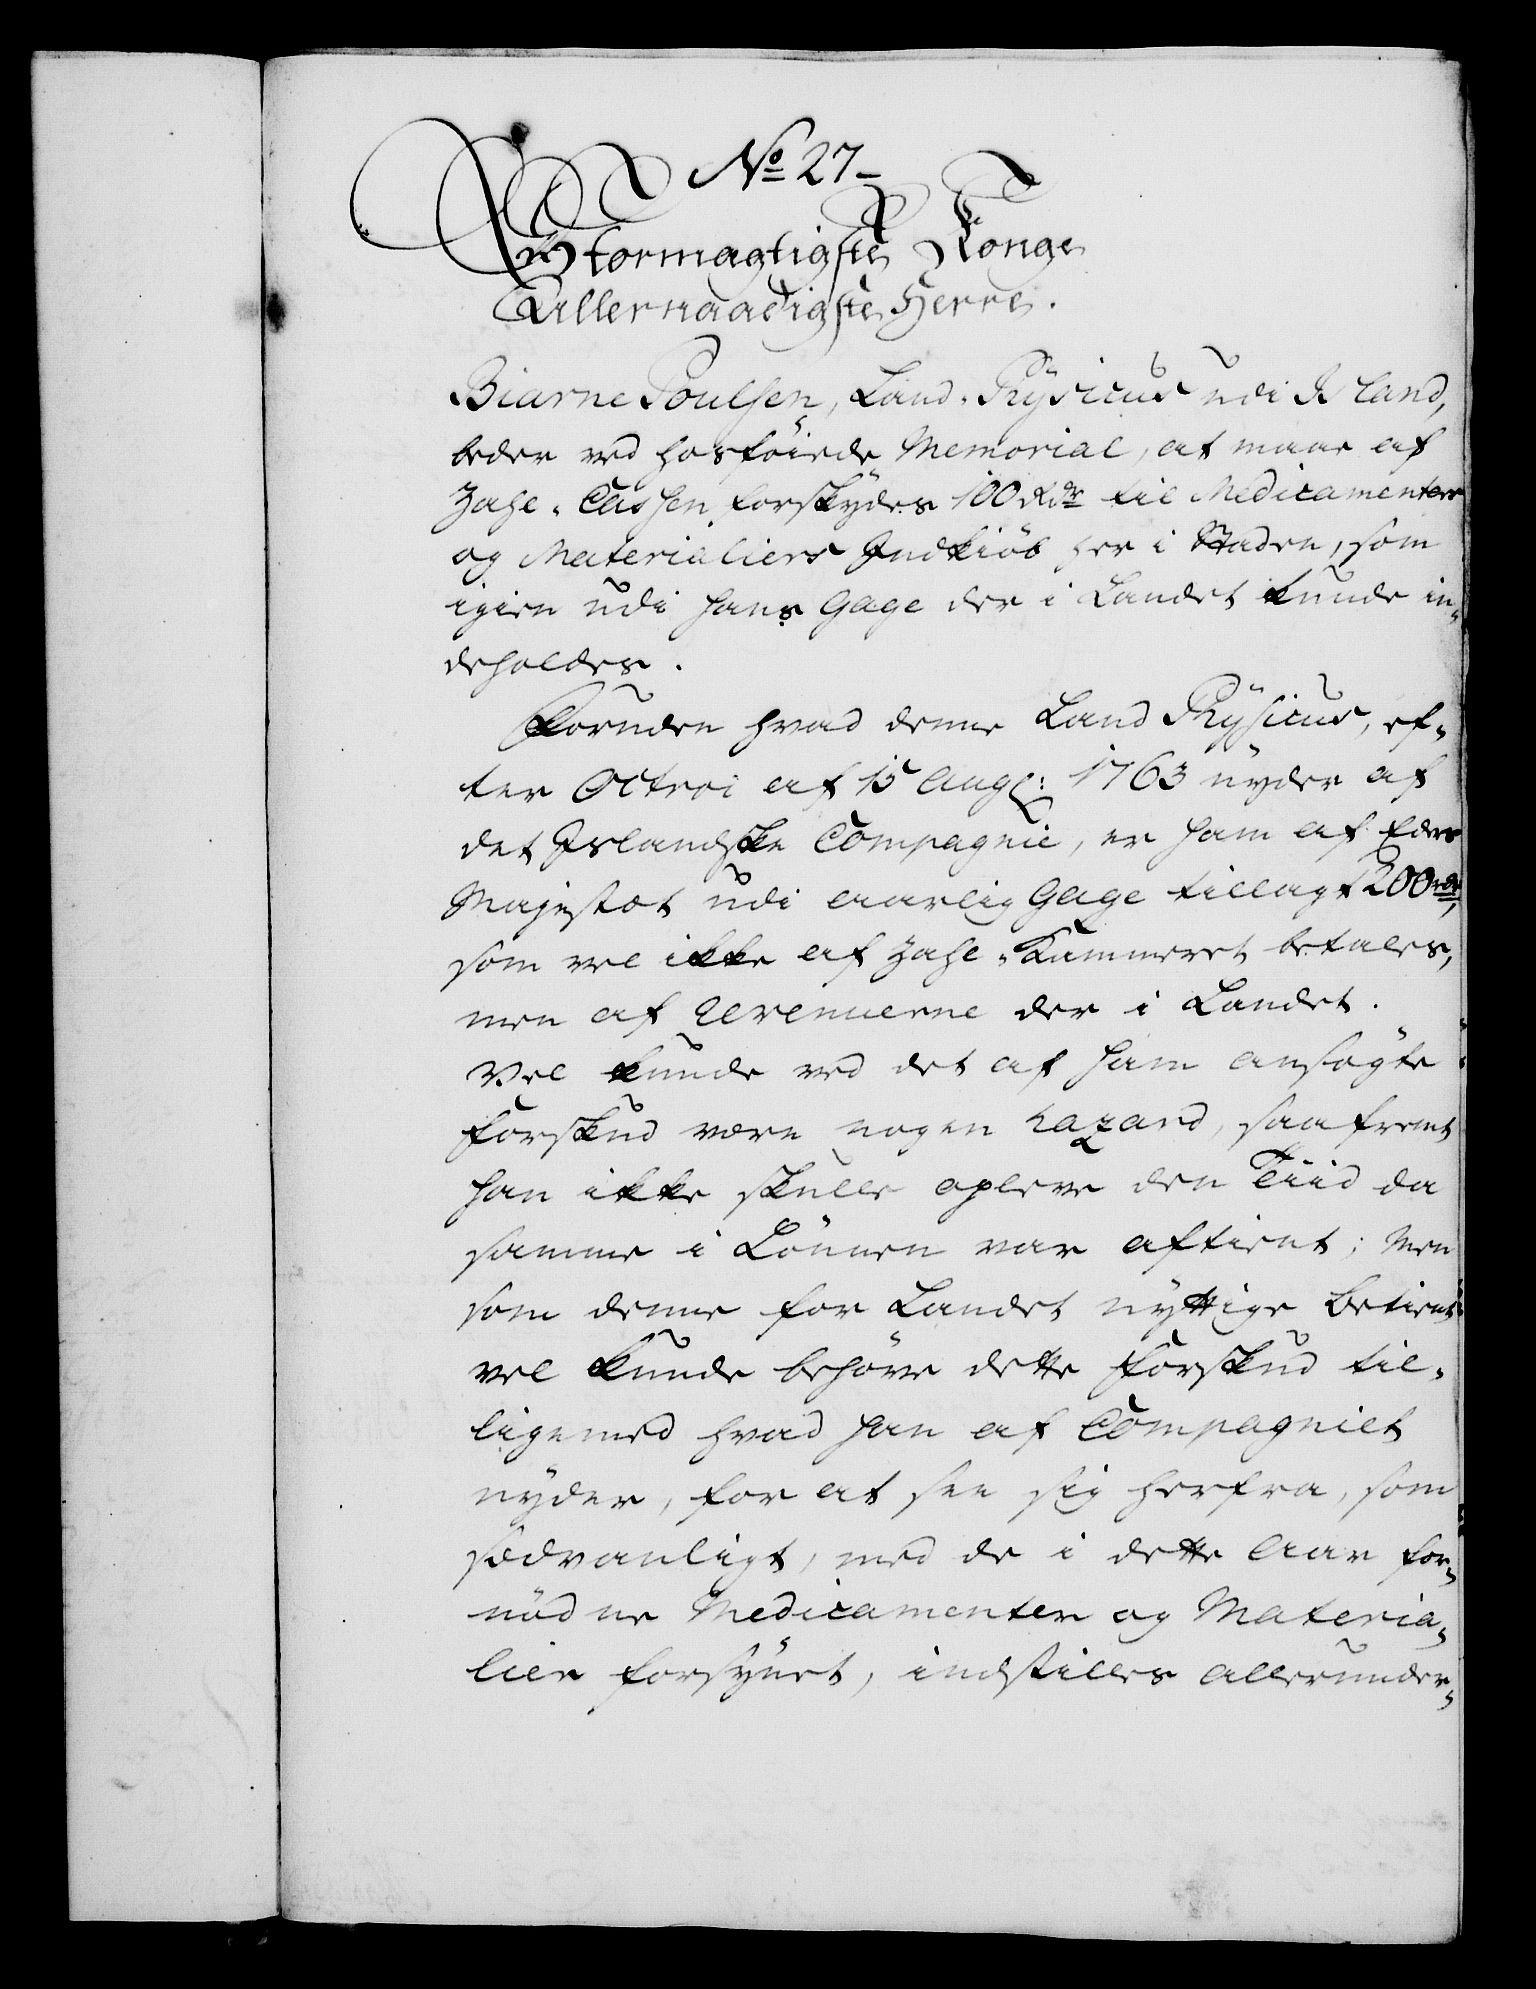 No 27_
Stormagtigste Konge
Allernaadigste Herre.
Biarne Poulsen, Land-Physicus udi Island,
beder ved hosföiede Memorial, at maae af
Zahl-Cassen forskydes 100 Rdr til Medicamenters
og Materialiers Indkiöb her i Staden, som
igien udi hans Gage der i Landet kunde in-
deholdes.
Foruden hvad denne Land Physicus, ef-
ter Octroi af 15 Aug: 1763 nyder af
det Islandske Compagnie, er ham af Eders
Majestæt udi aarlig Gage tillagt 200 rdr,
som vel ikke af Zahl-Kammeret betales,
men af Revenuerne der i Landet.
Vel kunde ved det af ham ansøgte
Forskud være nogen hazard, saafremt
han ikke skulle opleve den Tiid da
samme i Lönnen var aftient; Men
som denne for Landet nyttige Betient
vel kunde behöve dette Forskud til-
ligemed hvad han af Compagniet
nyder, for at see sig herfra, som
sædvanligt, med de i dette Aar for-
nödne Medicamenter og Materia-
lier forsynet, indstilles allerunder-